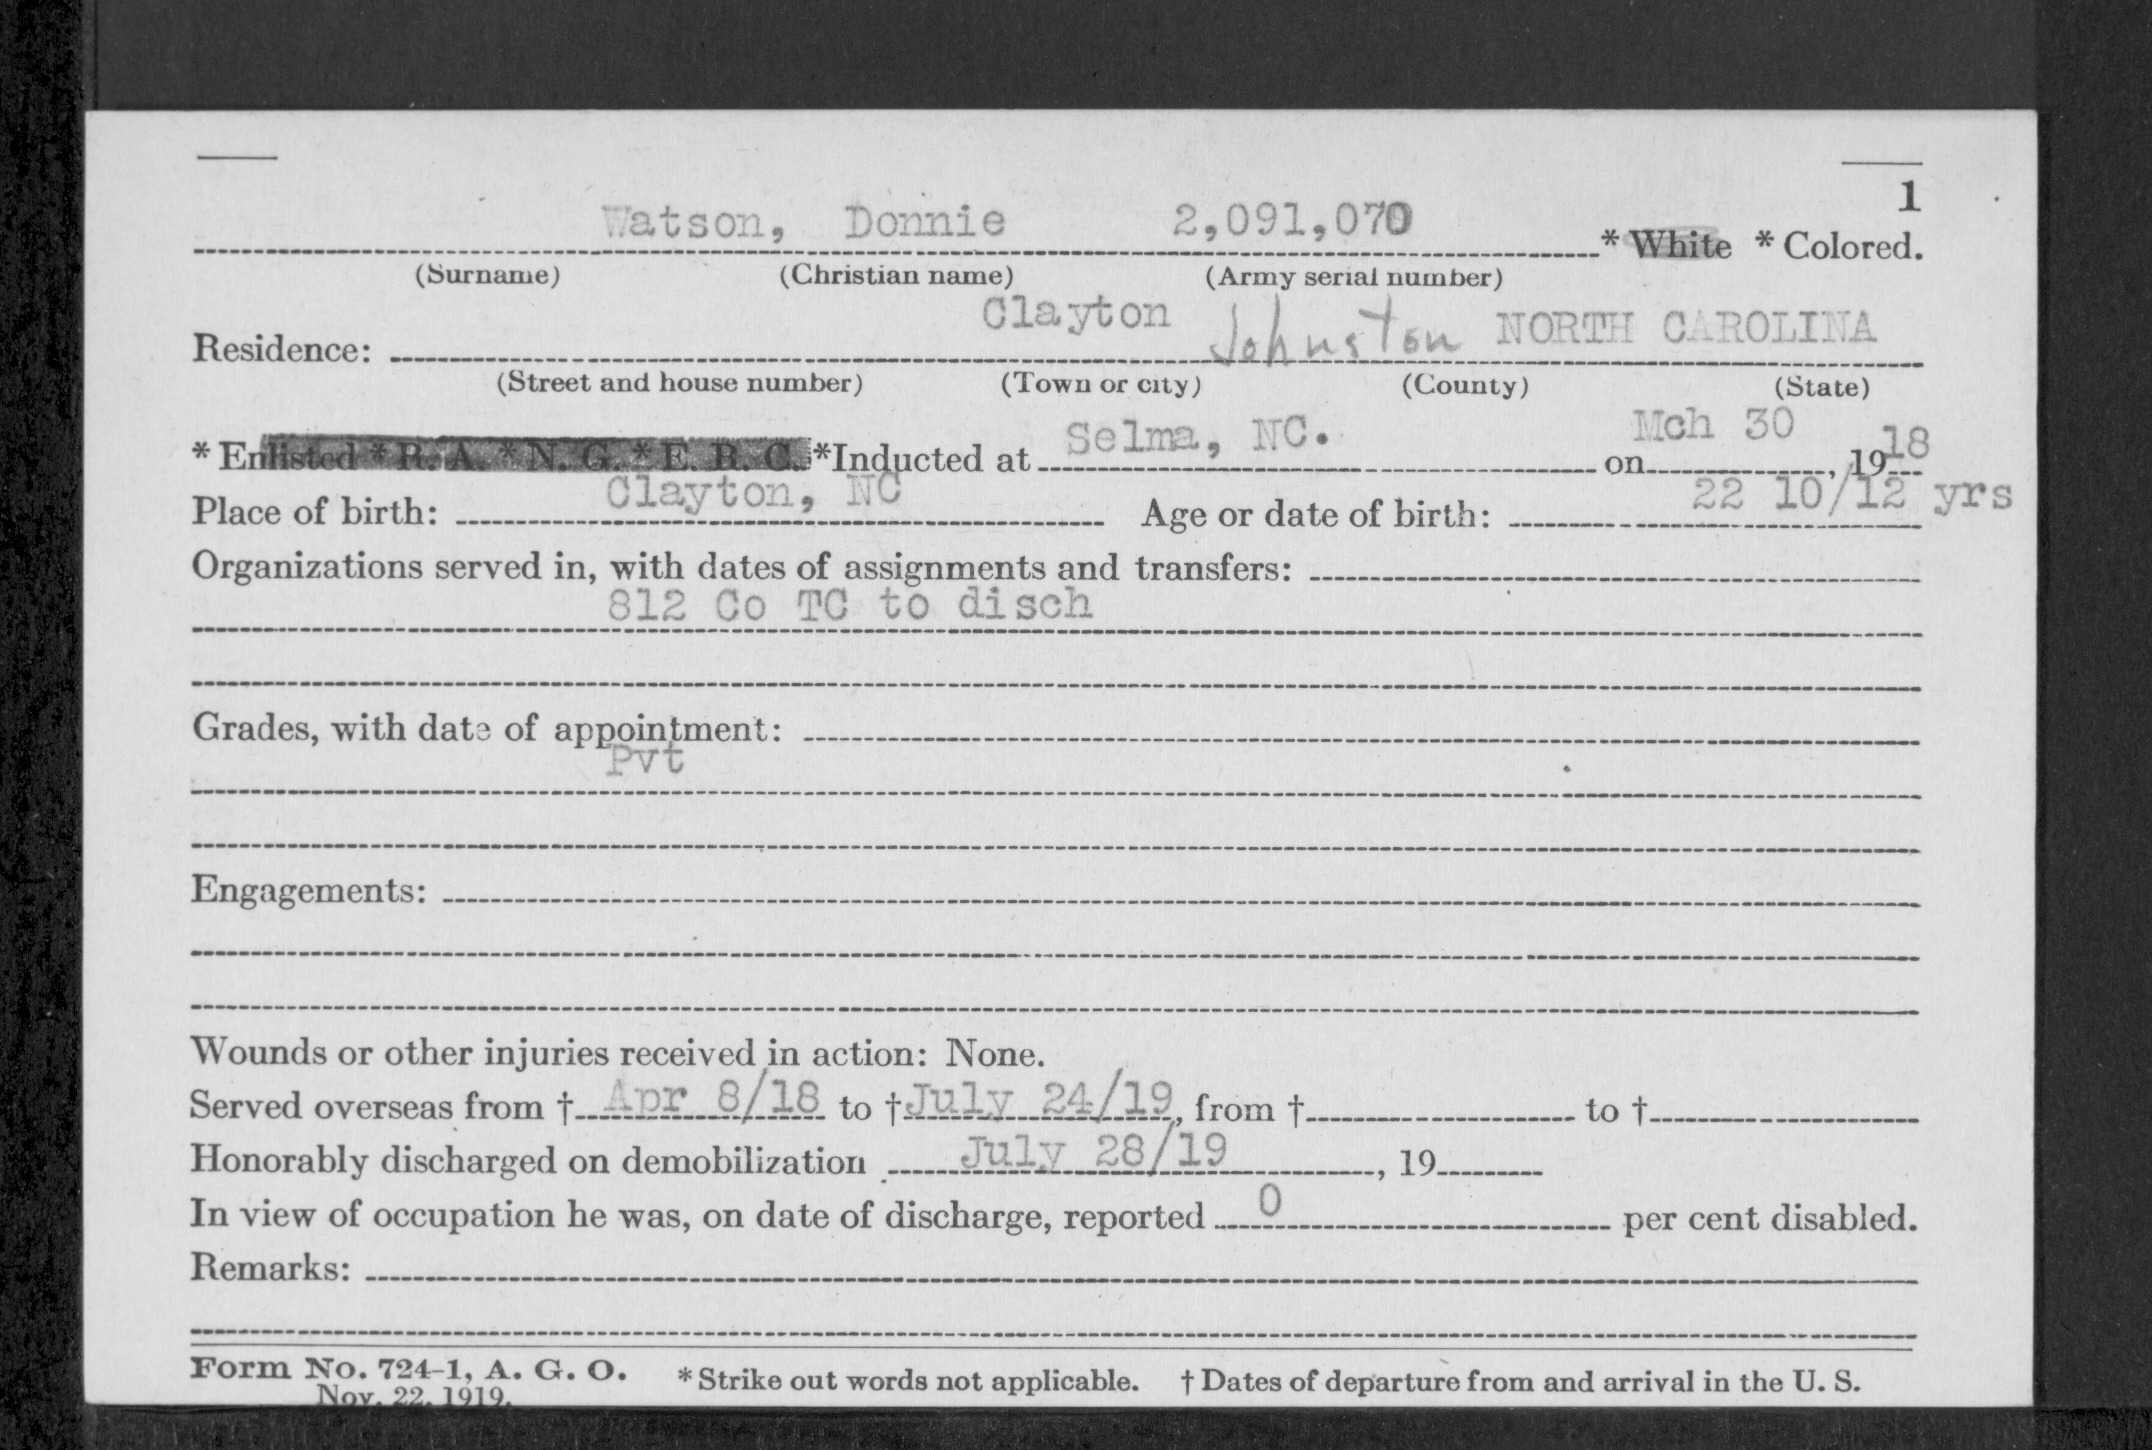 1
Watson, Donnie 2,091,070 * White * Colored.
(Surname) (Christian name) (Army serial number)
Residence: Clayton Johnston NORTH CAROLINA
(Street and house number) (Town or city) (County) (State)
* Enlisted * R. A. * N. G. * E. R. C. *Inducted at Selma, NC. on Mch 30, 1918
Place of birth: Clayton, NC Age or date of birth: 22 10/12 yrs
Organizations served in, with dates of assignments and transfers:
812 Co TC to disch
Grades, with date of appointment:
Pvt
Engagements:
Wounds or other injuries received in action: None.
Served overseas from † Apr 8/18 to † July 24/19, from † to †
Honorably discharged on demobilization July 28/19, 19
In view of occupation he was, on date of discharge, reported 0 per cent disabled.
Remarks:
Form No. 724-1, A. G. O. * Strike out words not applicable. † Dates of departure from and arrival in the U. S.
Nov. 22, 1919.